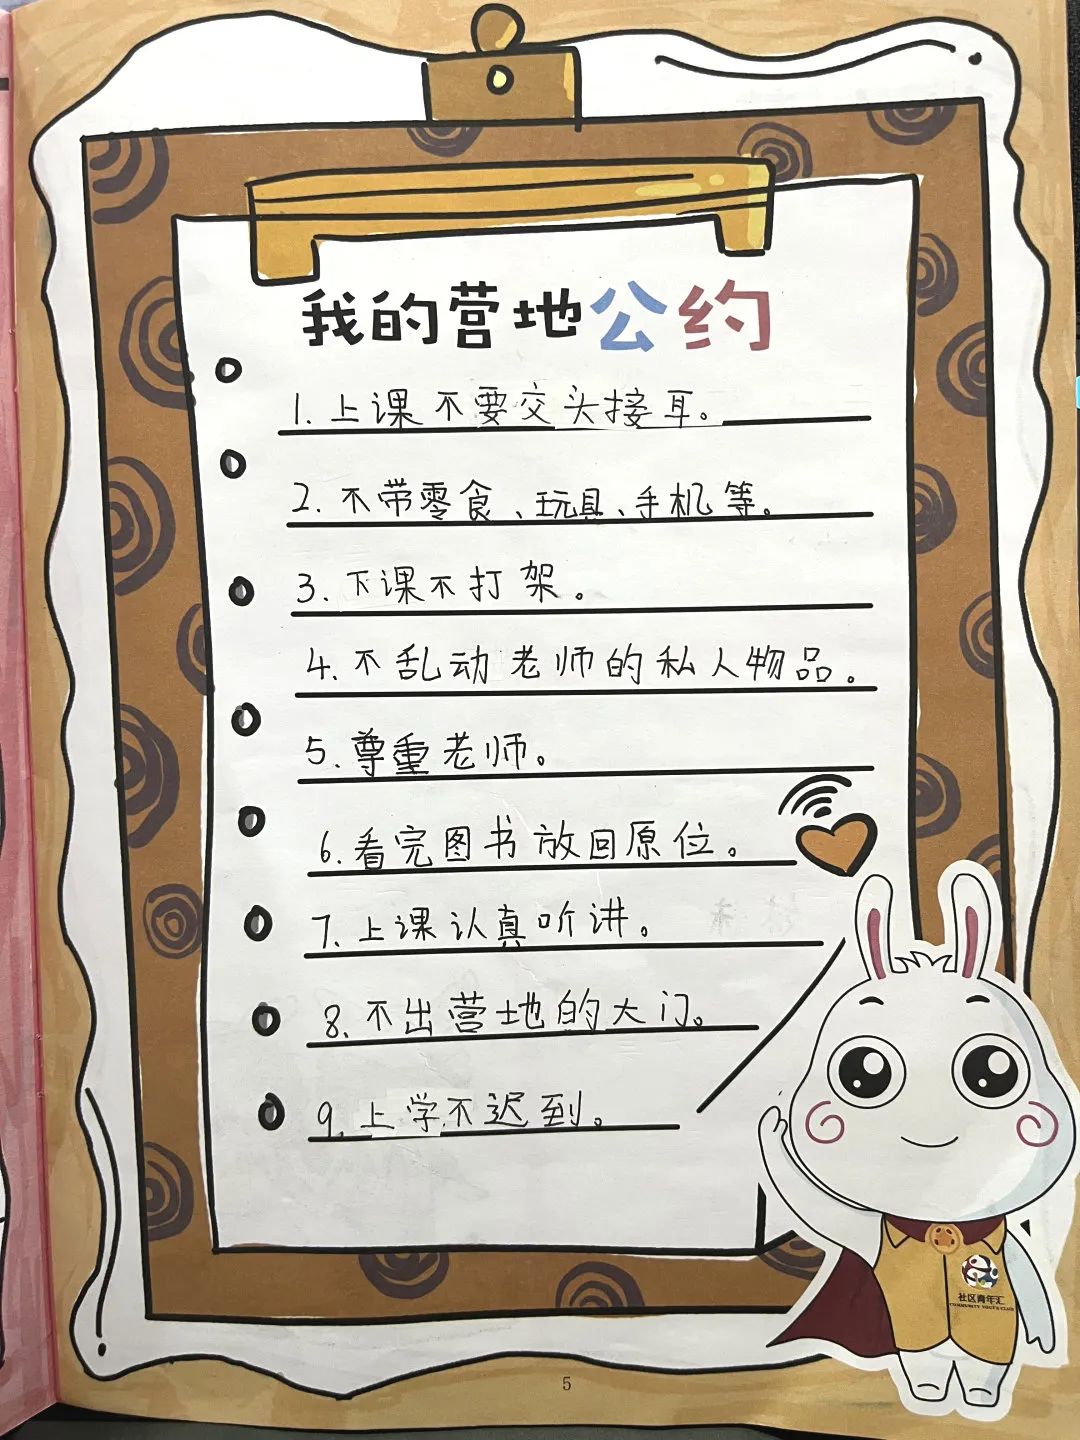 我的营地公约
1.上课不要交头接耳。
2.不带零食、玩具、手机等。
3.下课不打架。
4.不乱动老师的私人物品。
5.尊重老师。
6.看完图书放回原位。
7.上课认真听讲。
8.不出营地的大门。
9.上学不迟到。
社区青年汇
COMMUNITY YOUTH CLUB
5